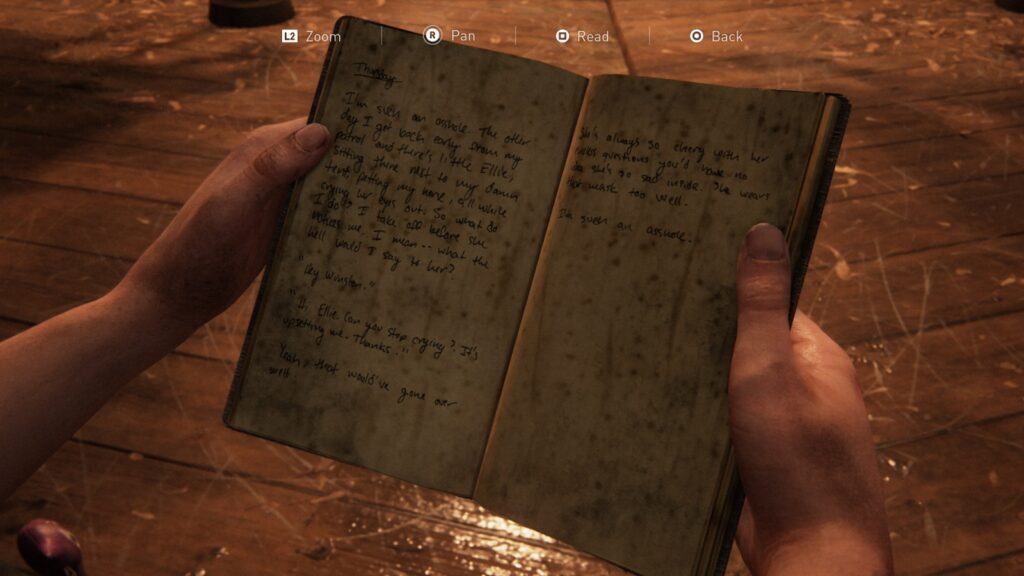 L2 Zoom R Pan Read Back
Thursday
I'm such an asshole. The other
day I get back early from my
patrol and there's little Ellie,
sitting there next to my damn
tent, petting my horse, all while
crying her eyes out. So what do
I do? I take off before she
notices me. I mean -- what the
hell would I say to her?
"Hey Winston."
"Hi, Ellie. Can you stop crying? It's
upsetting me. Thanks."
Yeah, that would've gone over
well.
She's always so cheery with her
questions you'd have no
she's so sad inside. She wears
her mask too well.
I'm such an asshole.